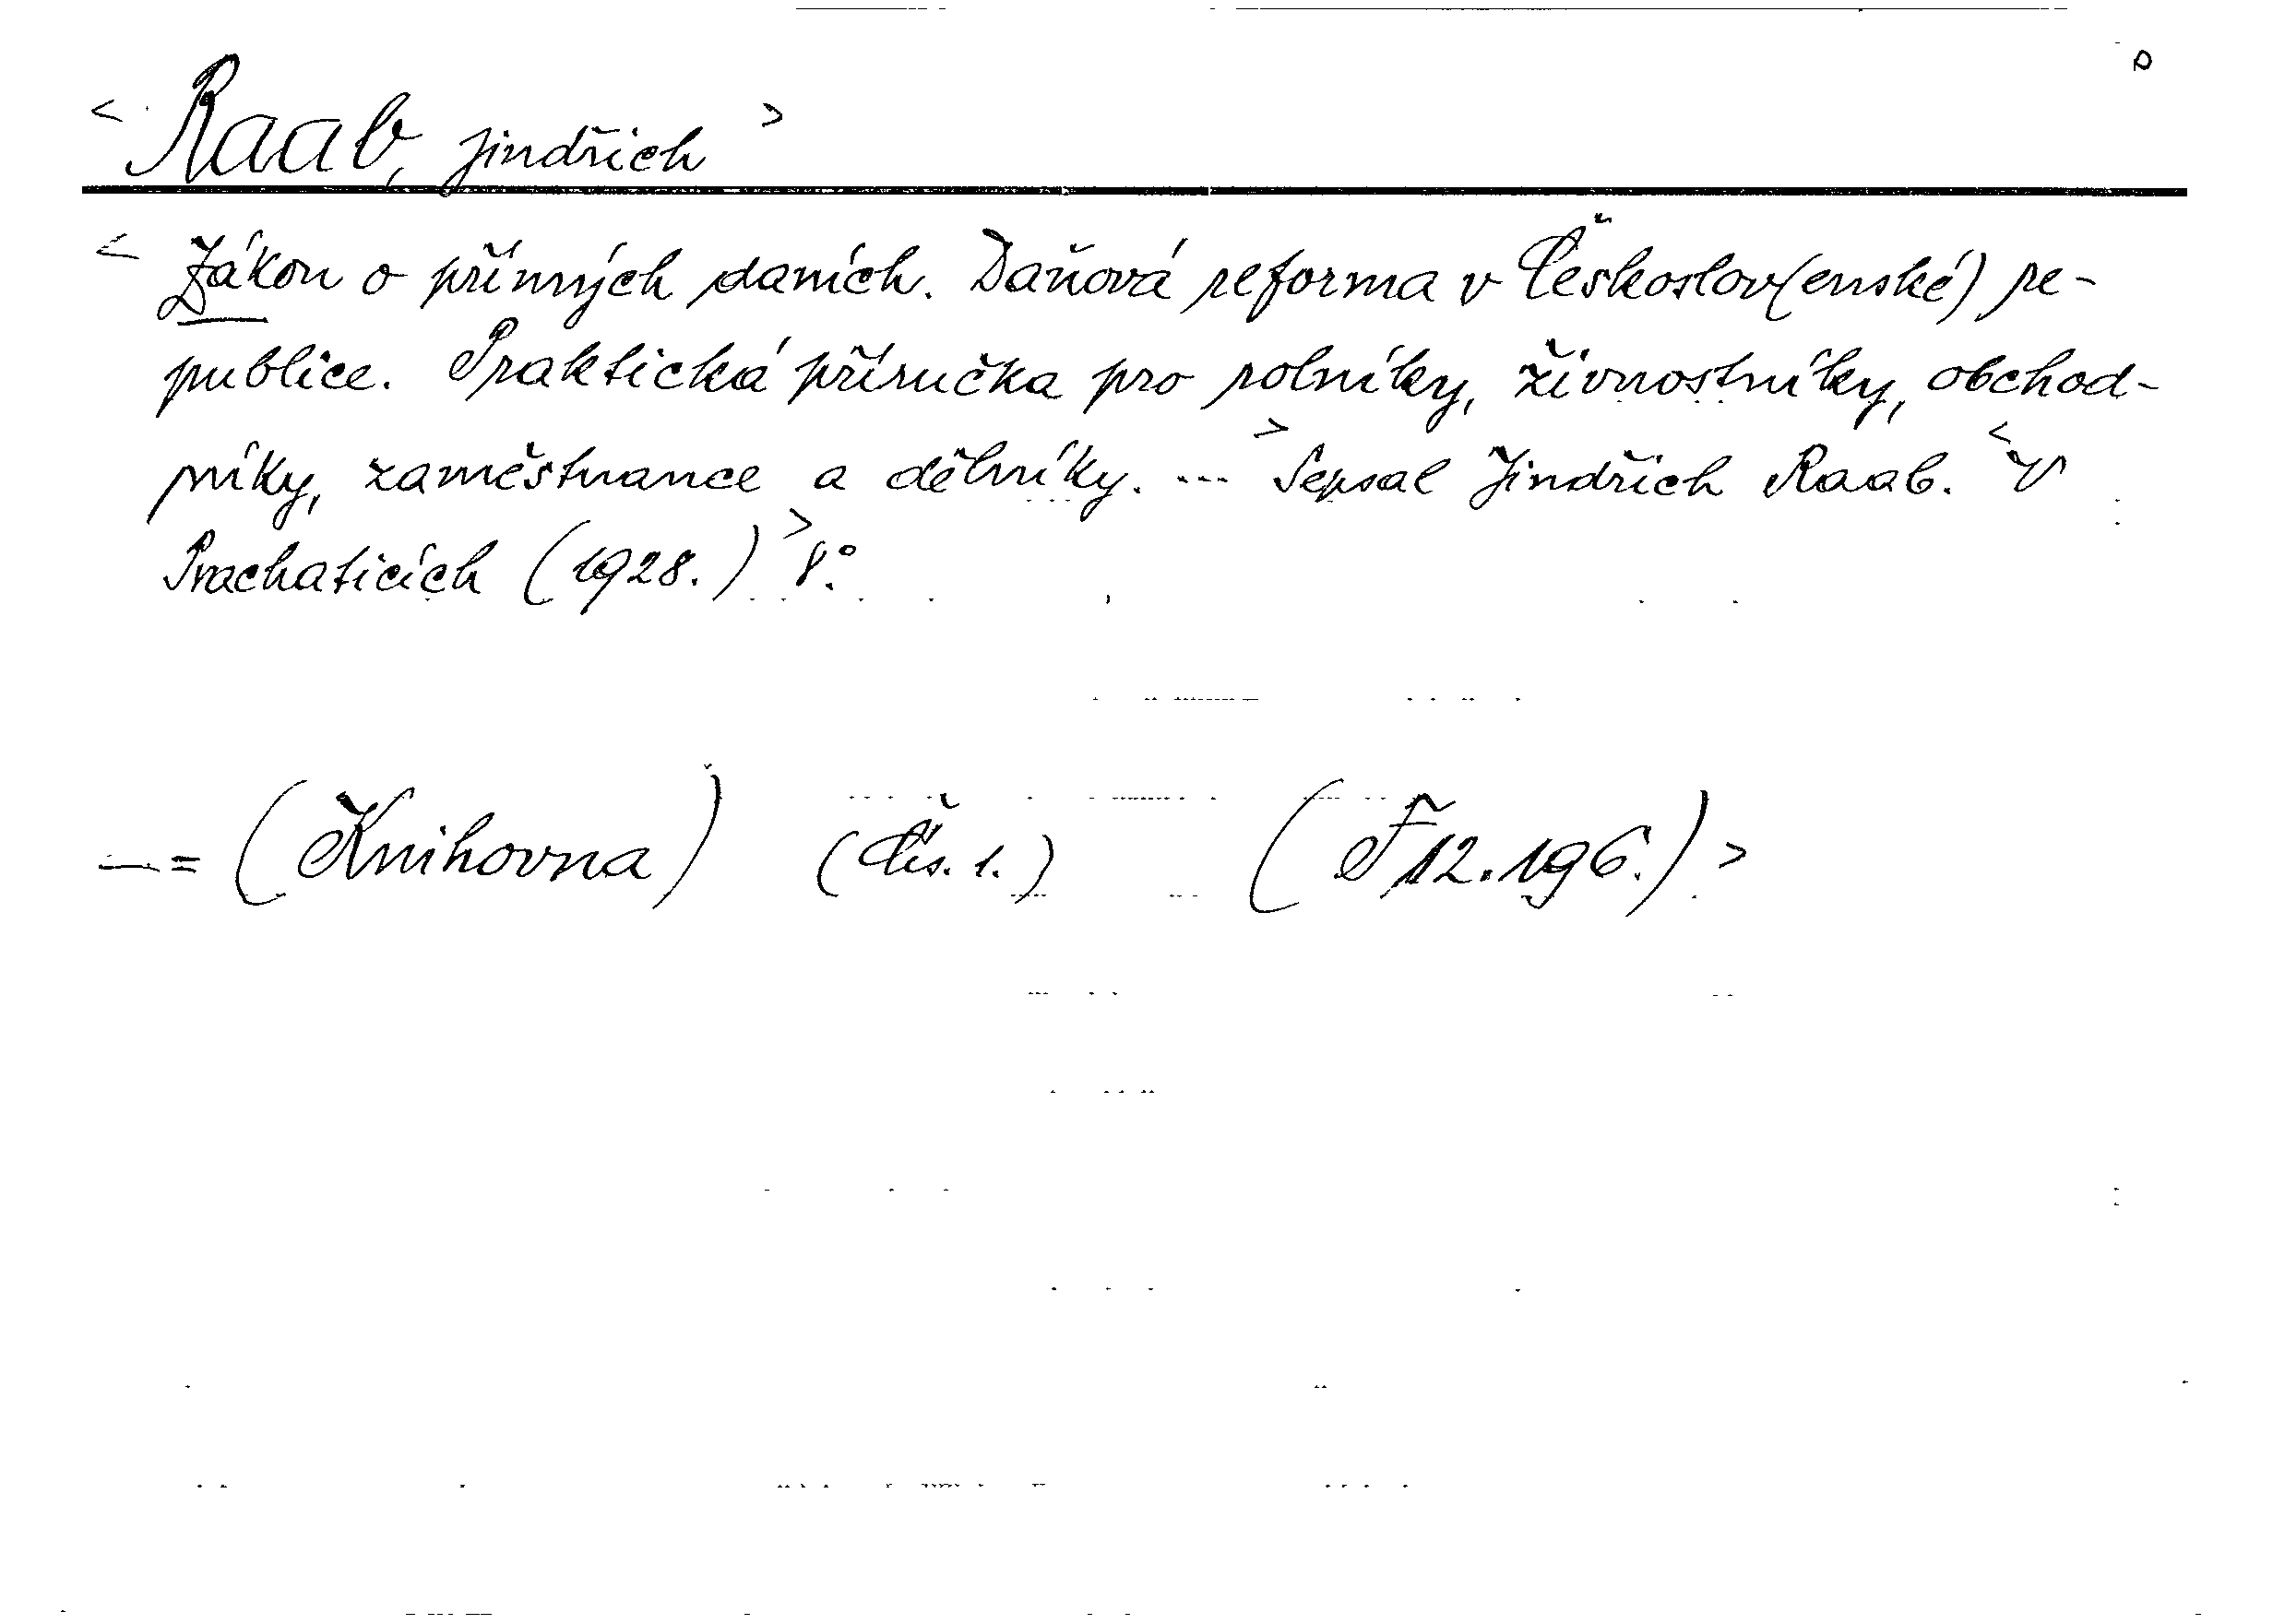 < Raab, Jindřich >
< Zákon o přímých daních. Daňová reforma v Českoslov(enské) re-
publice. Praktická příručka pro rolníky, živnostníky, obchod-
níky, zaměstnance a dělníky. ... > Sepsal Jindřich Raab. < V
Prachaticích (1928.) > 8°.
— = (Knihovna) (Čís. 1.) (F 12.196.) >